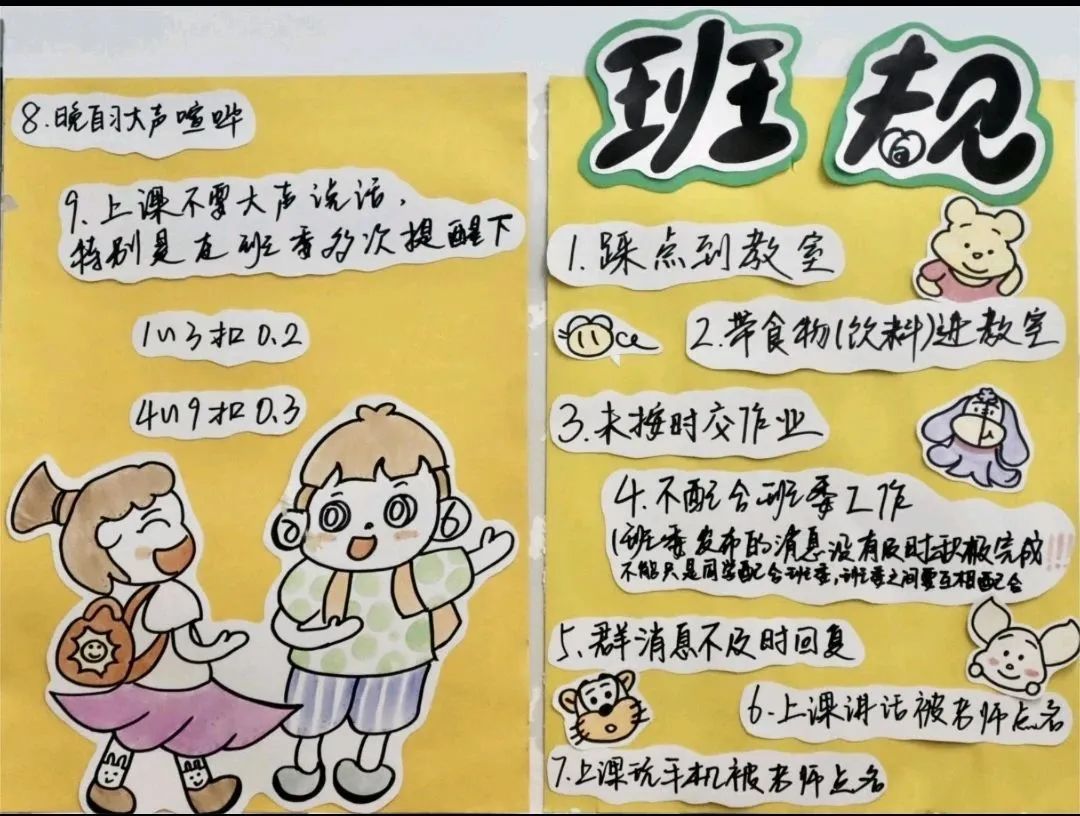 班规
1.踩点到教室
2.带食物(饮料)进教室
3.未按时交作业
4.不配合班委工作
(班委发布的消息没有及时积极完成!!!
不能只是同学配合班委,班委之间要互相配合
5.群消息不及时回复
6.上课讲话被老师点名
7.上课玩手机被老师点名
8.晚自习大声喧哗
9.上课不要大声说话,
特别是在班委多次提醒下
1~3扣0.2
4~9扣0.3